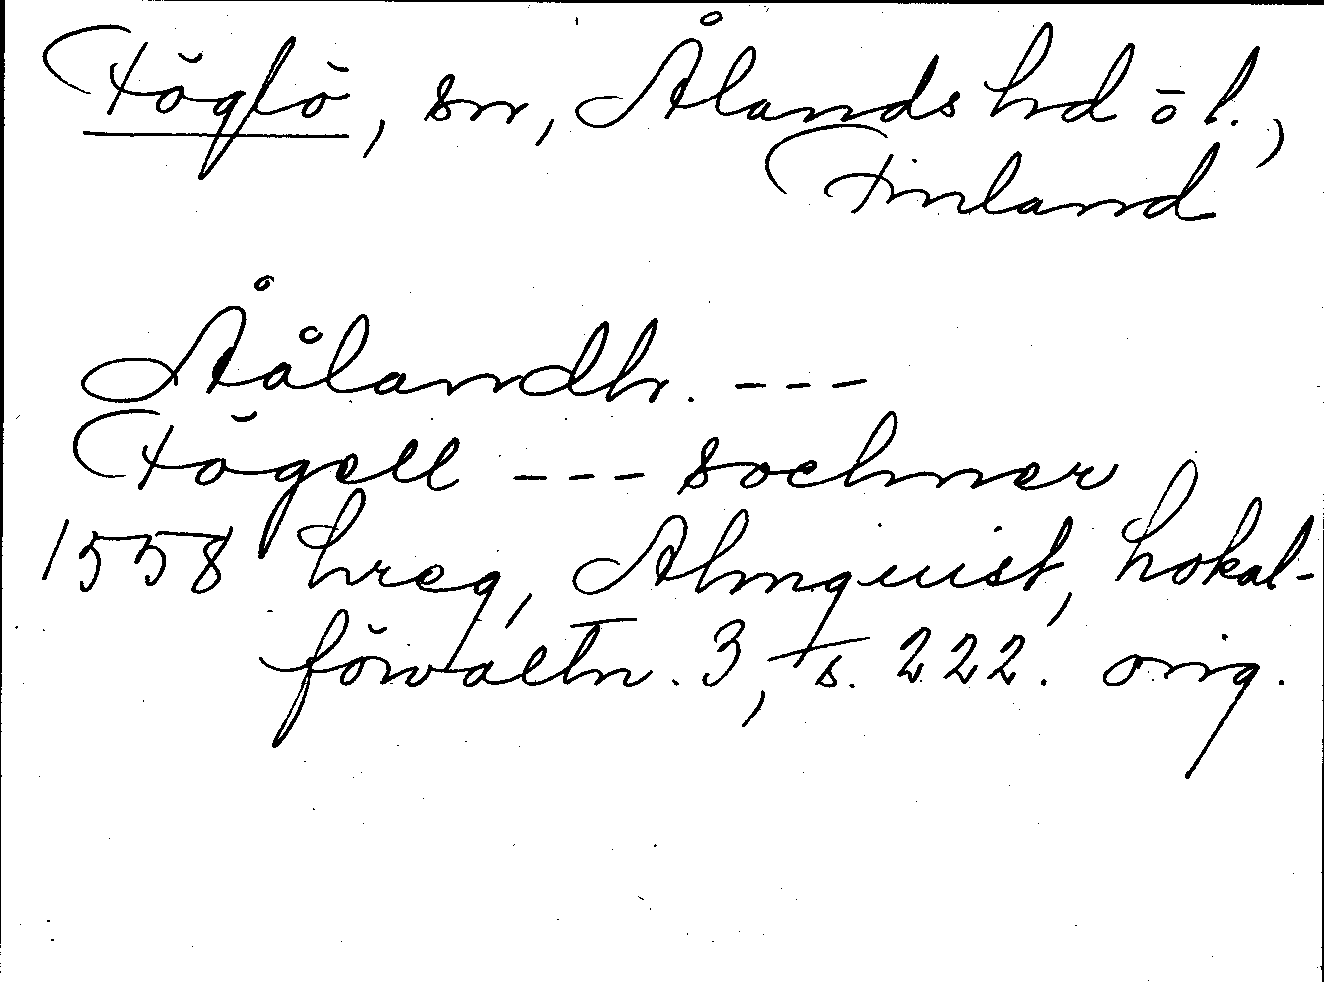 Föglö, sn, Ålands hd ö l.,
Finland
Åålandh. ---
Fögell --- sochner
1558 hreg, Almquist, Lokal-
förvaltn. 3, s. 222. orig.